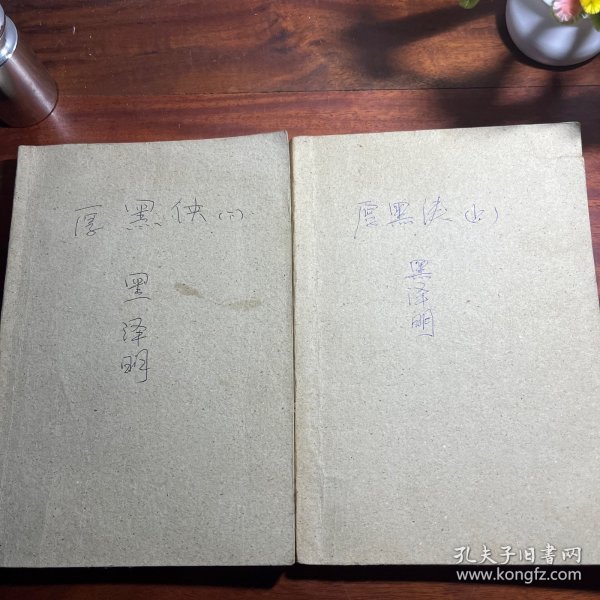 厚黑侠(下)
黑
泽
明
厚黑侠(上)
黑
泽
明
孔夫子旧书网
www.kongfz.com